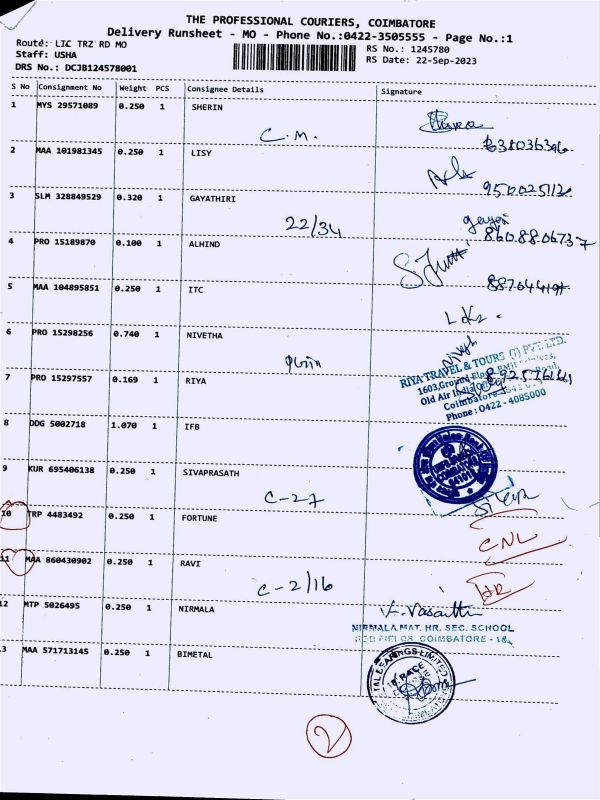 THE PROFESSIONAL COURIERS, COIMBATORE
Delivery Runsheet - MO - Phone No.:0422-3505555 - Page No.:1
Route: LIC TRZ RD MO
Staff: USHA
DRS No.: DCJB124578001
RS No.: 1245780
RS Date: 22-Sep-2023
S No Consignment No Weight PCS Consignee Details Signature
1 MYS 29571089 0.250 1 SHERIN
C.M.
2 MAA 101981345 0.250 1 LISY
3 SLM 328849529 0.320 1 GAYATHIRI
22/34
8608806737
4 PRO 15189870 0.100 1 ALHIND
5 MAA 104895851 0.250 1 ITC
6 PRO 15298256 0.740 1 NIVETHA
RIYA TRAVEL & TOURS (I) PVT. LTD.
1603, Ground Floor
Old Air India
Coimbatore
Phone : 0422 - 4085000
7 PRO 15297557 0.169 1 RIYA
8 DDG 5002718 1.070 1 IFB
9 KUR 695406138 0.250 1 SIVAPRASATH
C-27
10 TRP 4483492 0.250 1 FORTUNE
CNL
11 MAA 860430902 0.250 1 RAVI
C-2/16
12 MTP 5026495 0.250 1 NIRMALA
V. Vasanthi
NIRMALA MAT. HR. SEC. SCHOOL
RED FIELDS, COIMBATORE - 18.
13 MAA 571713145 0.250 1 BIMETAL
2